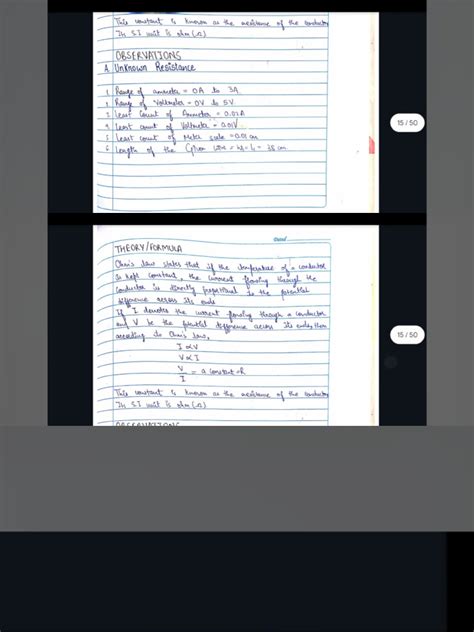 This constant is known as the resistance of the conductor
Its S.I unit is ohm (Ω)
OBSERVATIONS
A. Unknown Resistance
1 Range of ammeter = 0A to 3A
Range of Voltmeter = 0V to 5V
Least count of Ammeter = 0.02A
Least count of Voltmeter = 0.01V
5 Least count of Meter scale = 0.01 cm
6 Length of the Given wire = 38 cm
15 / 50
Dated
THEORY/FORMULA
Ohm's law states that if the temperature of a conductor
is kept constant, the current flowing through the
conductor is directly proportional to the potential
difference across its ends
If I denotes the current flowing through a conductor
and V be the potential difference across its ends, then
according to Ohm's law,
I ∝ V
V ∝ I
V/I = a constant
15 / 50
This constant is known as the resistance of the conductor
Its S.I unit is ohm (Ω)
OBSERVATIONS